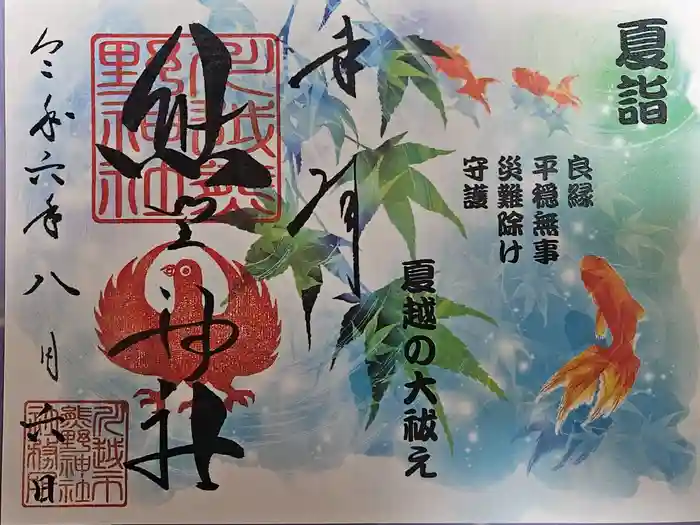 夏詣
良縁
平穏無事
災難除け
守護
夏越の大祓え
奉拝
熊野神社
川越熊
野神社
令和六年八月六日
川越市
熊野神社
社務所